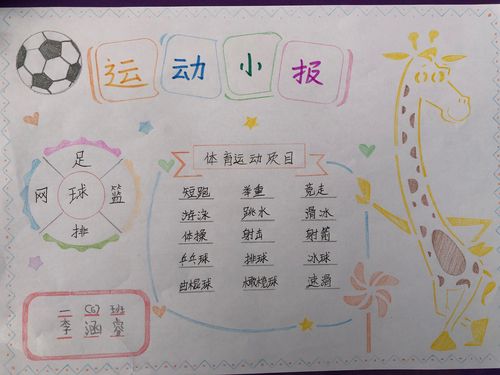 运动小报
足
网 球 篮
排
体育运动项目
短跑 举重 竞走
游泳 跳水 滑冰
体操 射击 射箭
乒乓球 排球 冰球
曲棍球 橄榄球 速滑
二 (6) 班
李 涵 睿